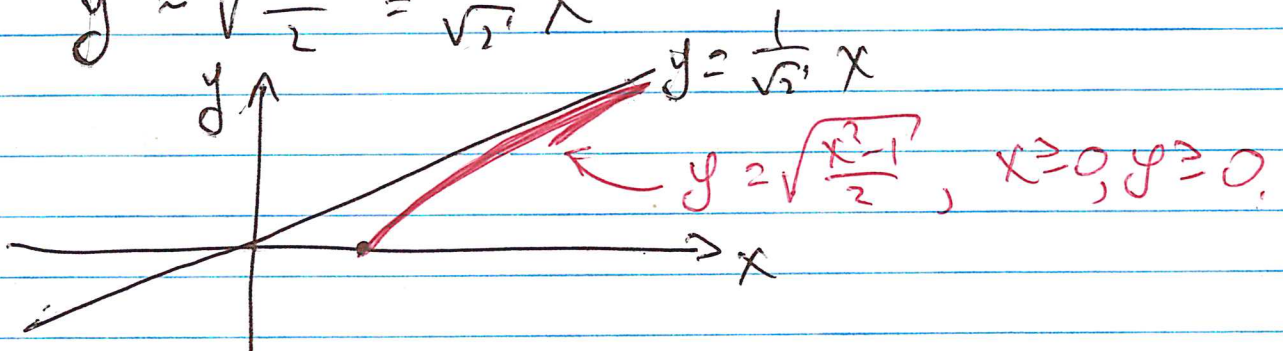 y ~ √ 2 = 1/√2 x
y = 1/√2 x
y
y = √((x²-1)/2), x≥0, y≥0.
x